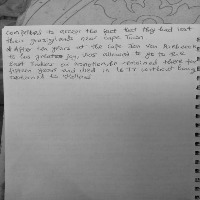 competitors to accept the fact that they had lost
their grazing lands near Cape Town
* After ten years at the Cape Jan Van Riebeeck
to his great joy, was allowed to go to the
East Indies
remained there for
fifteen years and died in 1677 without being
returned to Holland